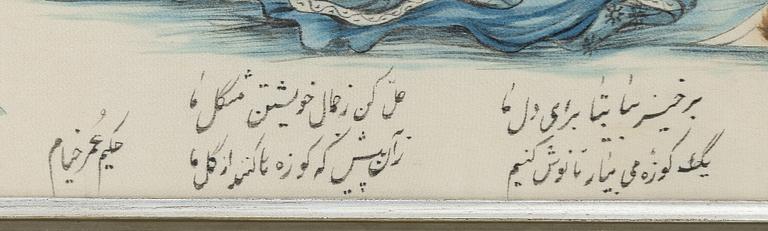 برخیز بتا بیا برای دل ما
حل کن ز جمال خویشتن مشکل ما
یک کوزه می بیار تا نوش کنیم
زآن پیش که کوزه ها کنند از گل ما
حکیم عمر خیام